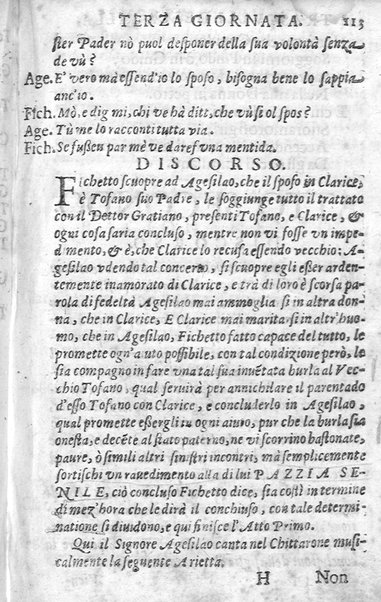 TERZA GIORNATA. 113
ster Pader nò puol desponer della sua volontà senza
de vù?
Age. E' vero mà essend'io lo sposo, bisogna bene lo sappia
anc'io.
Fich. Mò, e dig mì, chi ve hà ditt, che vù sì ol spos?
Age. Tù me lo racconti tutta via.
Fich. Se fussen par mè ve daref una mentida.
DISCORSO.
Fichetto scuopre ad Agesilao, che il sposo in Clarice,
è Tofano suo Padre, le soggiunge tutto il trattato
con il Dettor Gratiano, presenti Tofano, e Clarice, &
ogni cosa saria concluso, mentre non vi fosse un impe-
dimento, & è, che Clarice lo recusa essendo vecchio: A-
gesilao vdendo tal concerto, si scuopre egli esser arden-
temente inamorato di Clarice, e trà di loro è scorsa pa-
rola di fedeltà Agesilao mai ammoglia si in altra don-
na, che in Clarice, E Clarice mai maritarsi in altr'huo-
mo, che in Agesilao, Fichetto fatto capace del tutto, le
promette ogn'auto possibile, con tal condizione però, le
sia compagno in fare una tal sua inuetata burla al Vec
chio Tofano, qual seruirà per annichilare il parentado
d'esso Tofano con Clarice, e concluderlo in Agesilao,
qual promette essergli u ogni aiuro, pur che la burla sia
onesta, e decēte al stato paterno, ne vi scorrino bastonate,
paure, ò simili altri sinistri incontri, mà semplicemente
sortischi un rauedimento alla di lui PAZZIA SE-
NILE, ciò concluso Fichetto dice, sia così in termine
di mez'hora che le dirà il conchiuso, con tale determi-
natione si diuidono, e qui finisce l'Atto Primo.
Qui il Signore Agesilao canta nel Chittarone musi-
calmente la seguente Arietta.
H Non